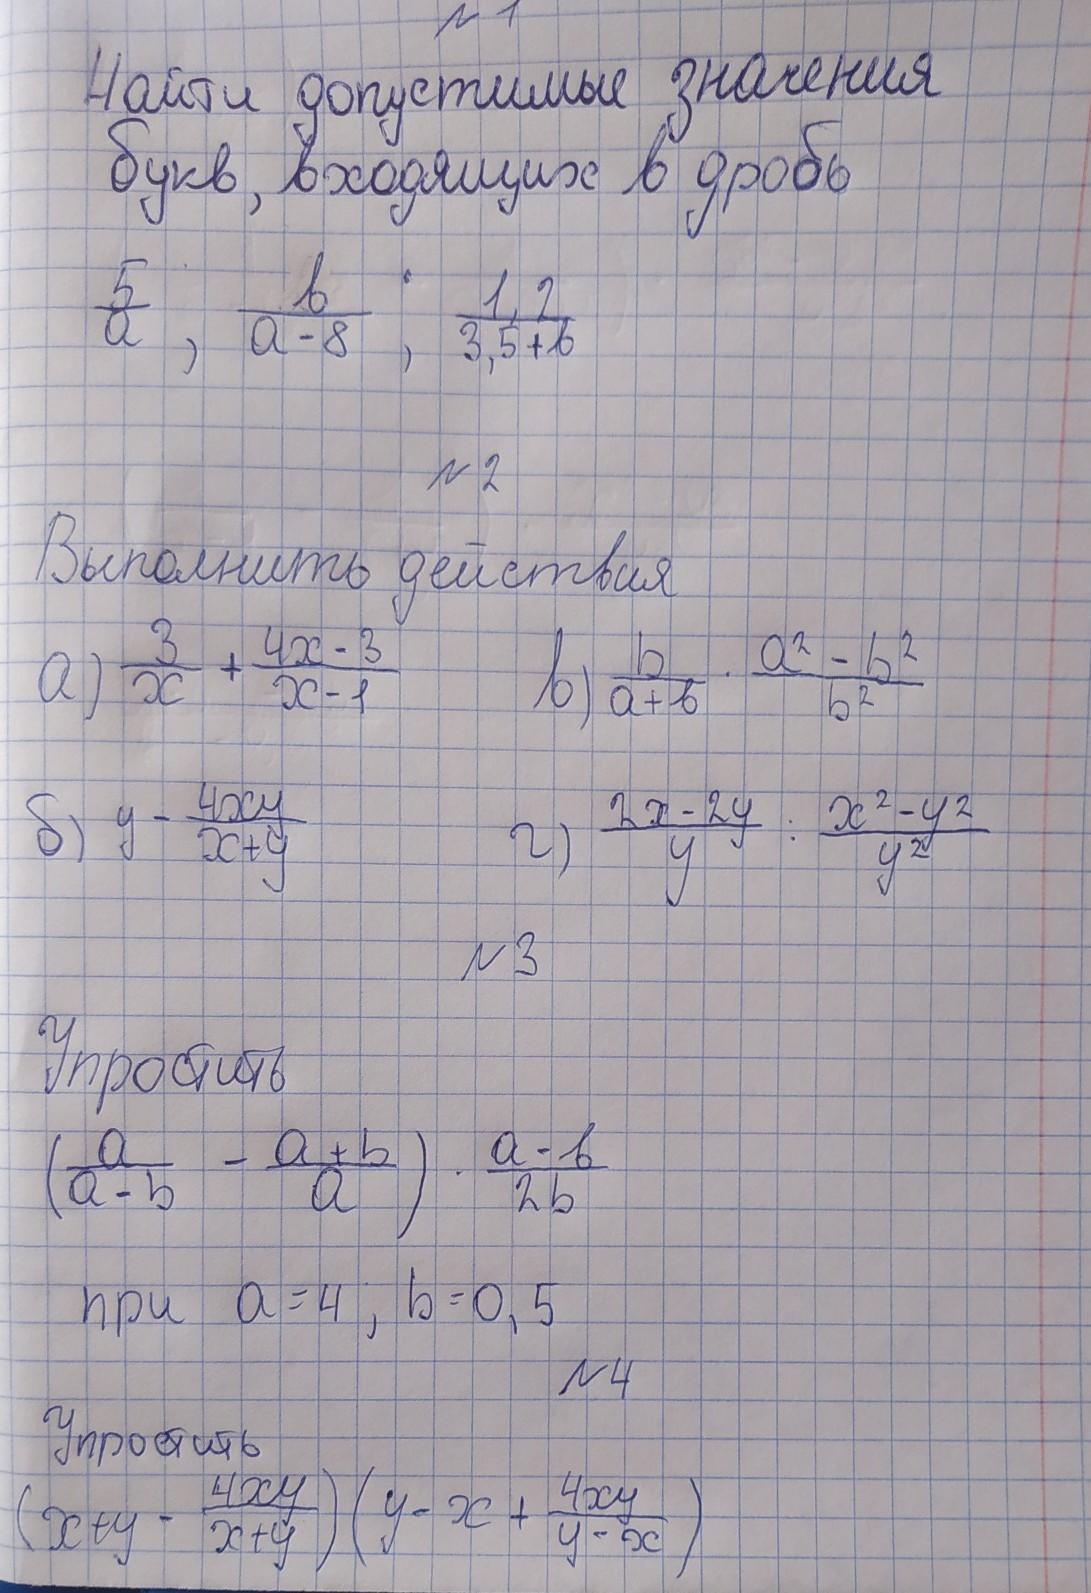 №1
Найти допустимые значения
букв, входящих в дробь
5/a , b/(a-8) ; 1,2/(3,5+b)
№2
Выполнить действия
а) 3/x + (4x-3)/(x-1) в) b/(a+b) · (a²-b²)/b²
б) y - 4xy/(x+y) г) (2x-2y)/y : (x²-y²)/y²
№3
Упростить
(a/(a-b) - (a+b)/a) · (a-b)/2b
при a=4, b=0,5
№4
Упростить
(x+y - 4xy/(x+y))(y-x + 4xy/(y-x))